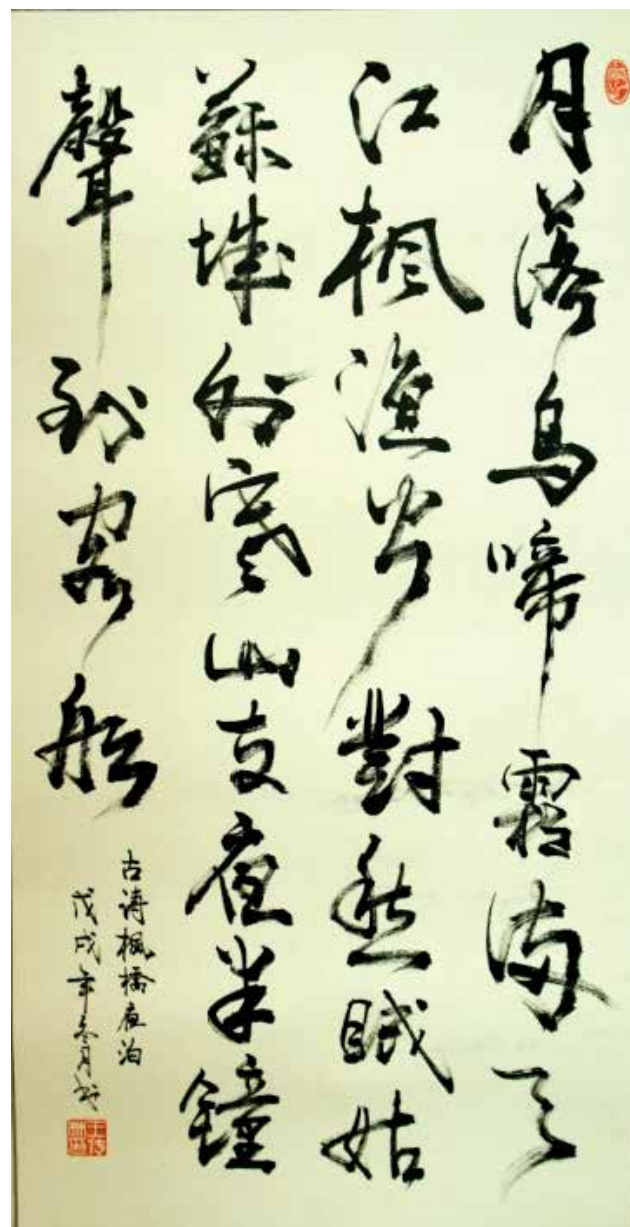 月落烏啼霜满天
江枫漁火對愁眠姑
蘇城外寒山寺夜半鐘
聲到客船
古詩楓橋夜泊
戊戌年冬月书